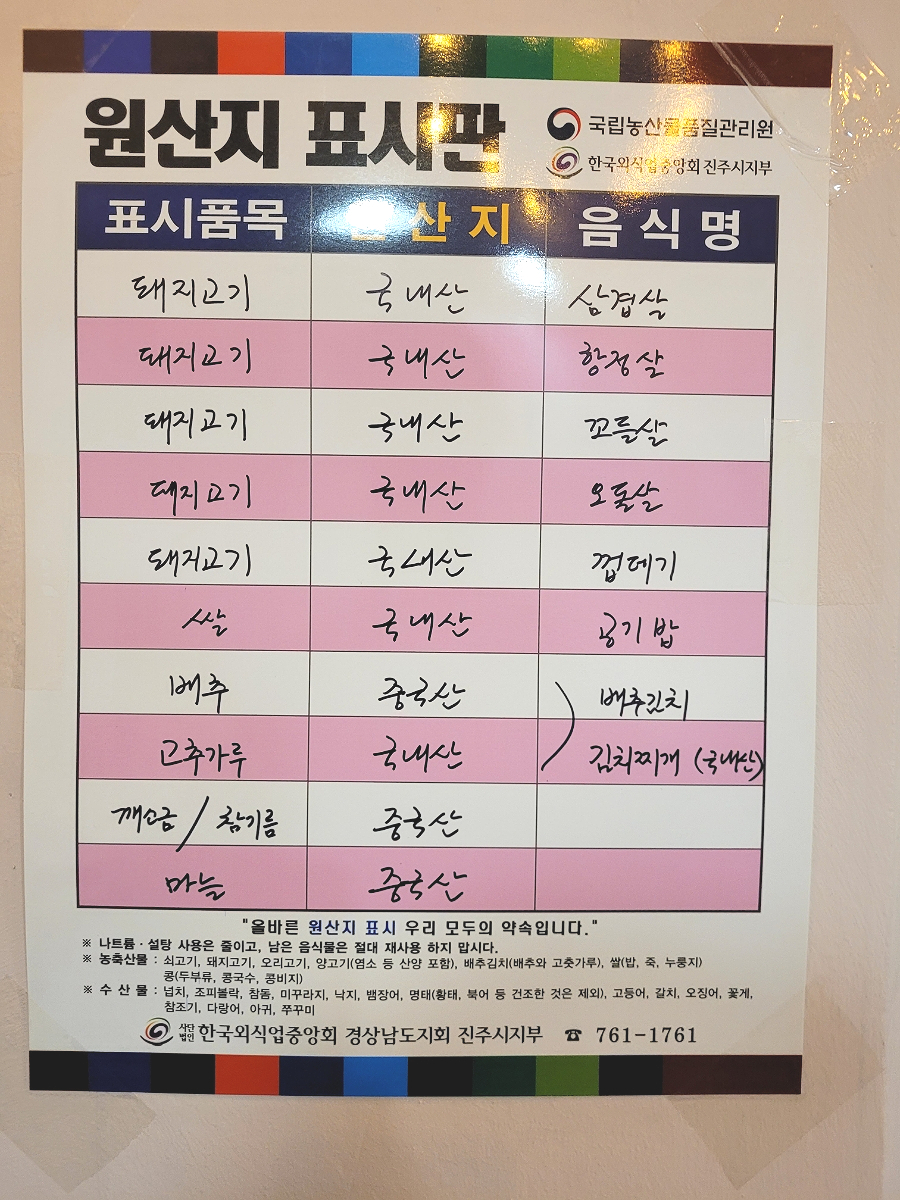 원산지 표시판
국립농산물품질관리원
한국외식업중앙회 진주시지부
표시품목 원산지 음식명
돼지고기 국내산 삼겹살
돼지고기 국내산 항정살
돼지고기 국내산 꼬들살
돼지고기 국내산 오돌살
돼지고기 국내산 껍데기
쌀 국내산 공기밥
배추 중국산 ) 배추김치
고추가루 국내산 김치찌개 (국내산)
깨소금 / 참기름 중국산
마늘 중국산
"올바른 원산지 표시 우리 모두의 약속입니다."
※ 나트륨·설탕 사용은 줄이고, 남은 음식물은 절대 재사용 하지 맙시다.
※ 농축산물 : 쇠고기, 돼지고기, 오리고기, 양고기(염소 등 산양 포함), 배추김치(배추와 고춧가루), 쌀(밥, 죽, 누룽지)
콩(두부류, 콩국수, 콩비지)
※ 수 산 물 : 넙치, 조피볼락, 참돔, 미꾸라지, 낙지, 뱀장어, 명태(황태, 북어 등 건조한 것은 제외), 고등어, 갈치, 오징어, 꽃게,
참조기, 다랑어, 아귀, 쭈꾸미
사단법인 한국외식업중앙회 경상남도지회 진주시지부 ☎ 761-1761